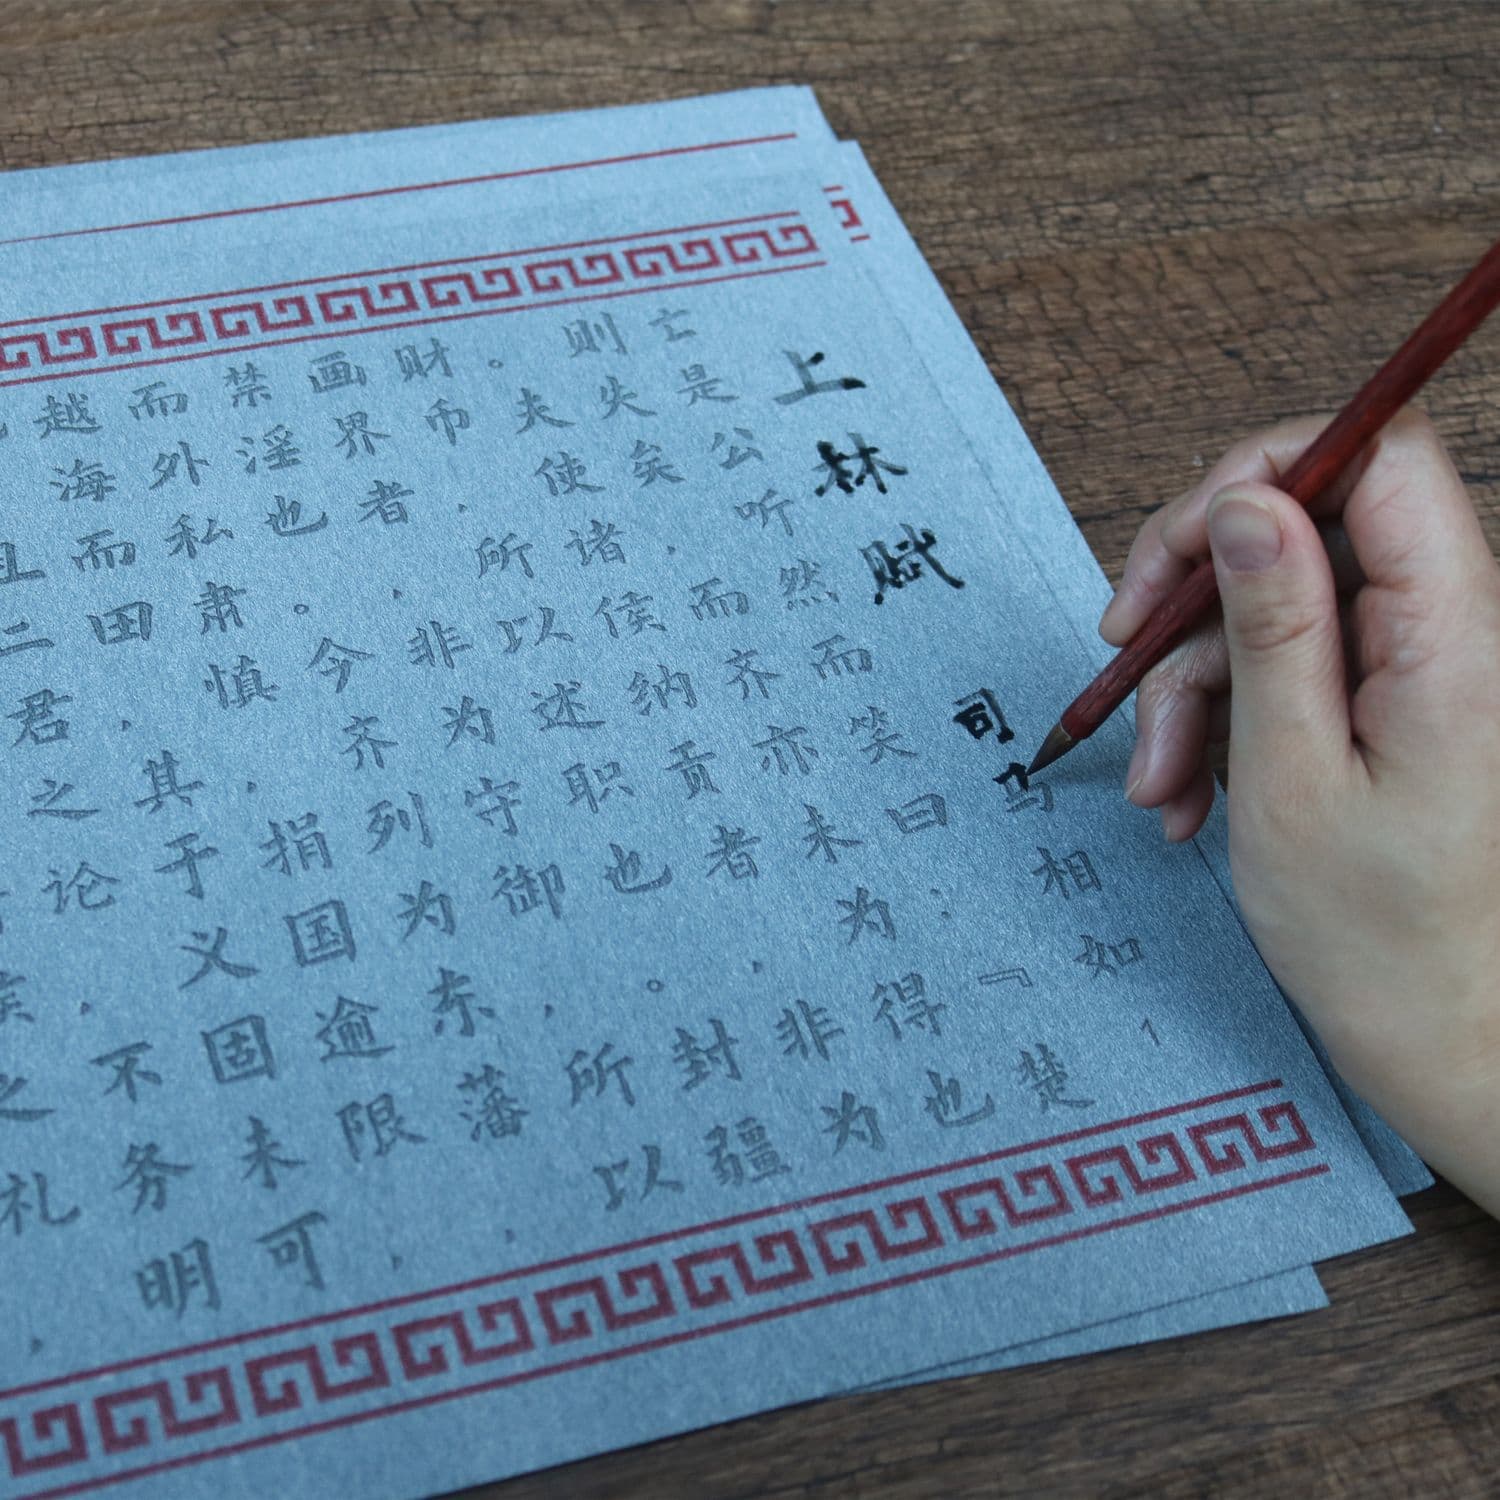 上林赋 司马相如 1
亡是公听然而笑曰：『楚
则失矣，而齐亦未为得也
。夫使诸侯纳贡者，非为
财币，所以述职也。封疆
画界者，非为守御，所以
禁淫也。今齐列为东藩，
而外私肃慎，捐国逾限，
越海而田，其于义固未可
也。且二君之论，不务明
侯之礼，